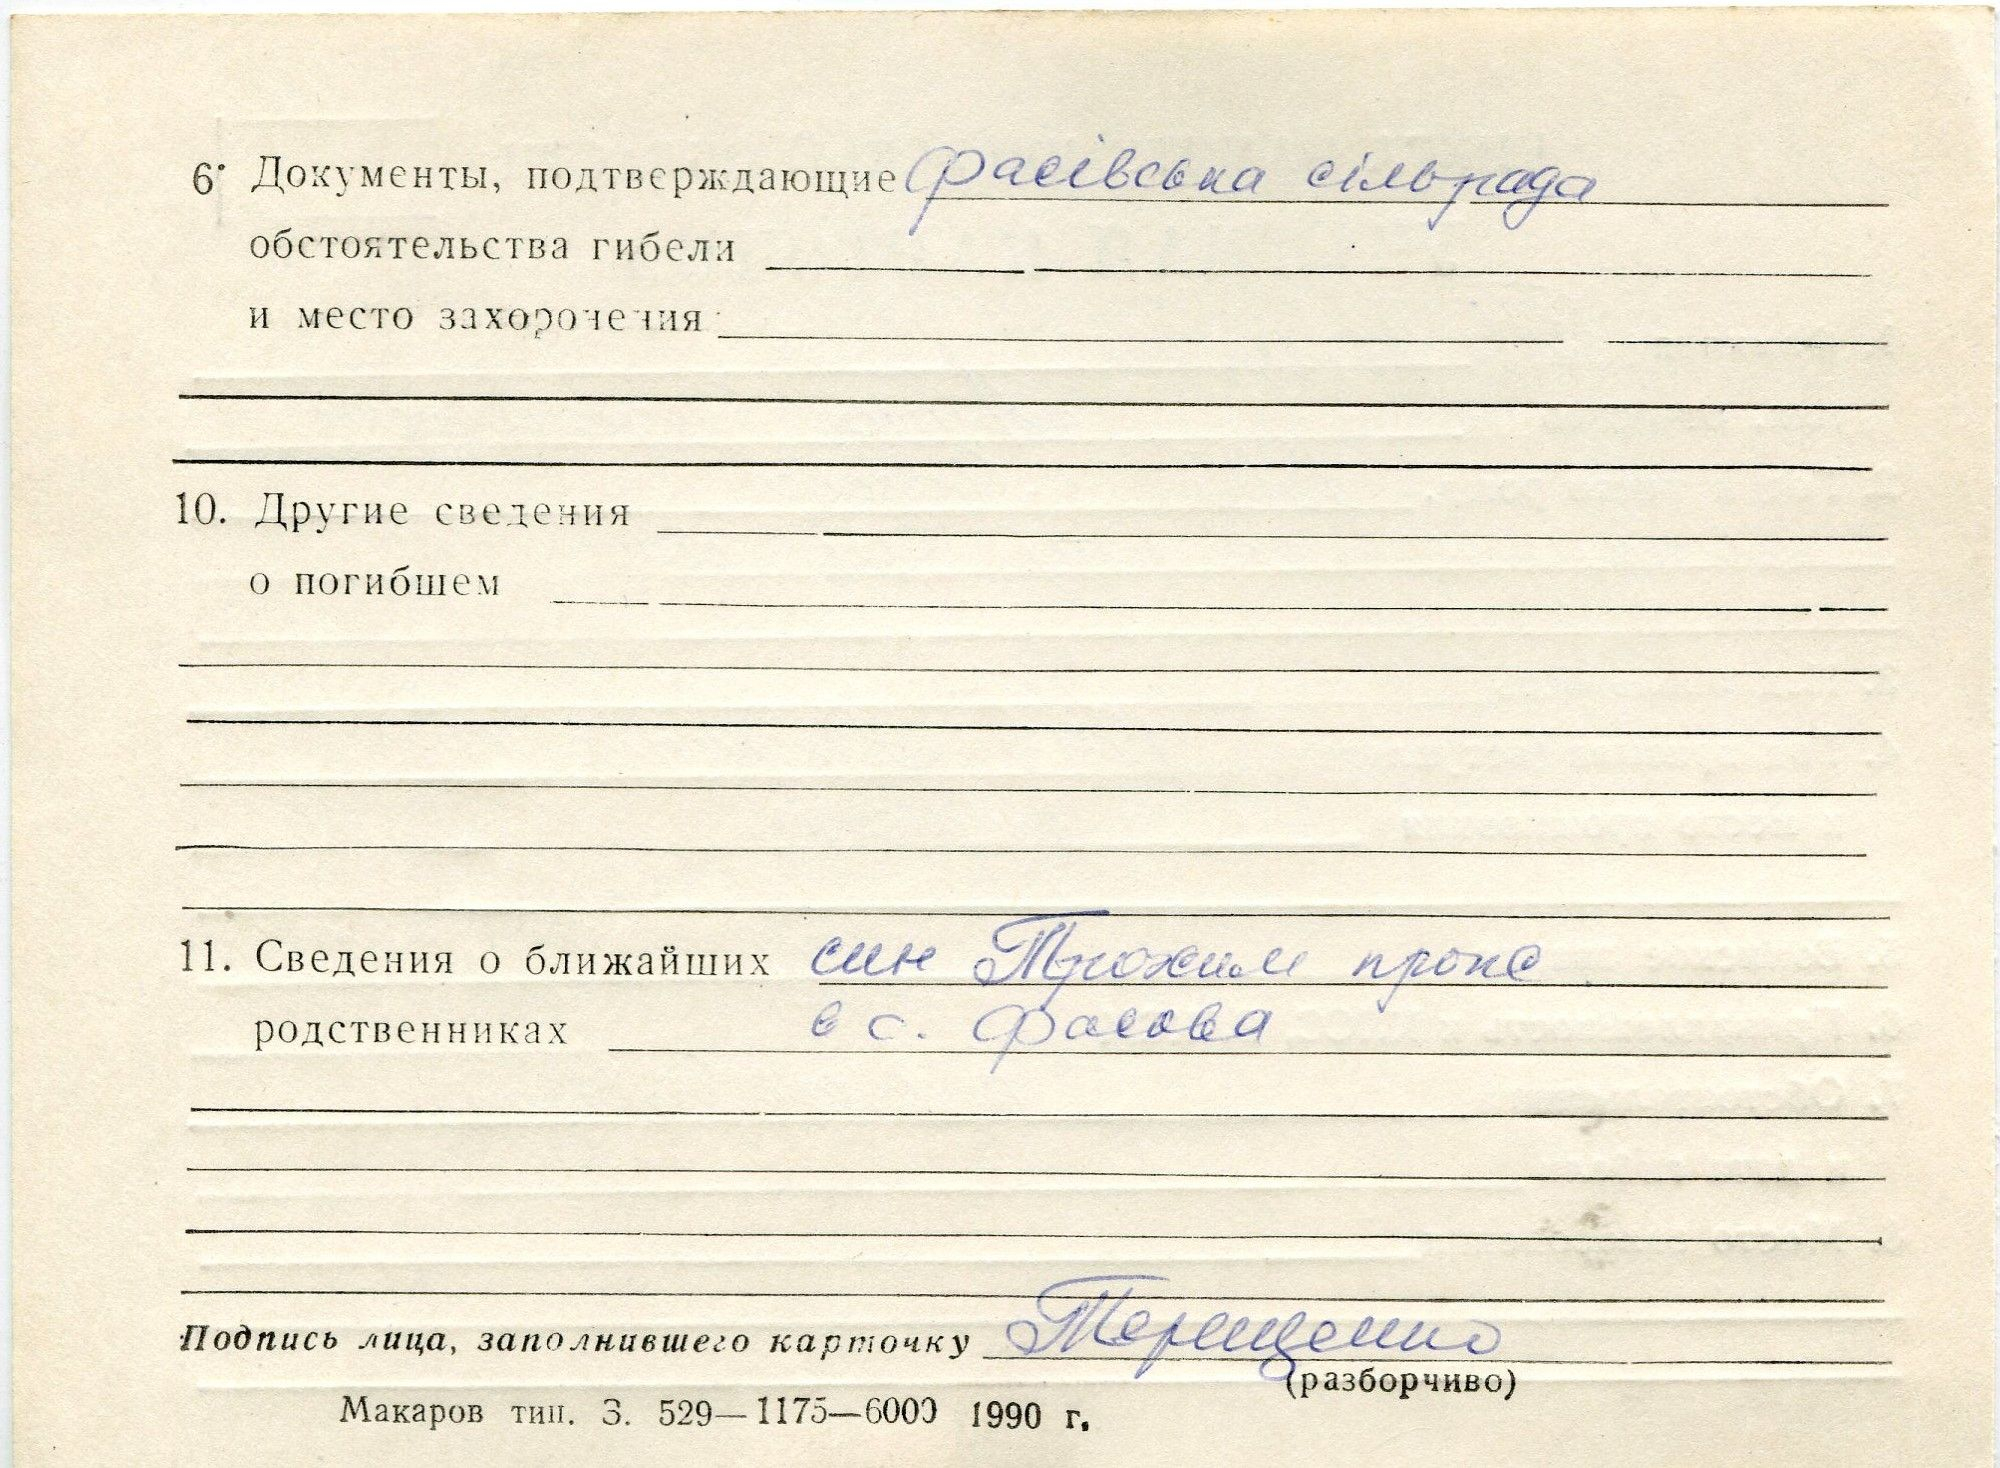 6. Документы, подтверждающие Фасівська сільрада
обстоятельства гибели
и место захоронения
10. Другие сведения
о погибшем
11. Сведения о ближайших син Трохим прож
родственниках в с. Фасова
Подпись лица, заполнившего карточку Терещенко
(разборчиво)
Макаров тип. З. 529—1175—6000 1990 г.